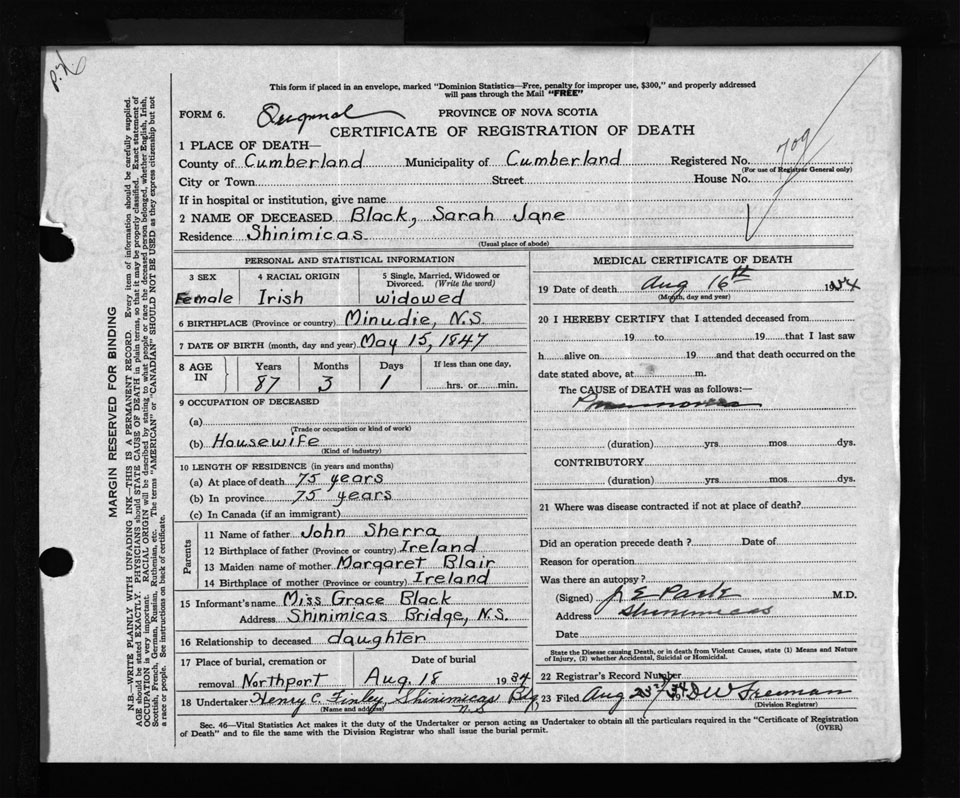 P.K.
This form if placed in an envelope, marked "Dominion Statistics—Free, penalty for improper use, $300," and properly addressed
will pass through the Mail "FREE"
FORM 6.
PROVINCE OF NOVA SCOTIA
CERTIFICATE OF REGISTRATION OF DEATH
1 PLACE OF DEATH—
County of Cumberland Municipality of Cumberland Registered No. 709
(For use of Registrar General only)
City or Town Street House No.
If in hospital or institution, give name
2 NAME OF DECEASED Black, Sarah Jane
Residence Shinimicas
(Usual place of abode)
PERSONAL AND STATISTICAL INFORMATION
3 SEX 4 RACIAL ORIGIN 5 Single, Married, Widowed or
Divorced. (Write the word)
Female Irish widowed
6 BIRTHPLACE (Province or country) Minudie, N.S.
7 DATE OF BIRTH (month, day and year) May 15, 1847
8 AGE IN Years Months Days If less than one day,
87 3 1 hrs. or min.
9 OCCUPATION OF DECEASED
(a)
(Trade or occupation or kind of work)
(b) Housewife
(Kind of industry)
10 LENGTH OF RESIDENCE (in years and months)
(a) At place of death 75 years
(b) In province 75 years
(c) In Canada (if an immigrant)
Parents
11 Name of father John Sherra
12 Birthplace of father (Province or country) Ireland
13 Maiden name of mother Margaret Blair
14 Birthplace of mother (Province or country) Ireland
15 Informant's name Miss Grace Black
Address Shinimicas Bridge, N.S.
16 Relationship to deceased daughter
17 Place of burial, cremation or Date of burial
removal Northport Aug. 18 1934
18 Undertaker Henry C. Finley Shinimicas Bdg
(Name and address) N.S.
MEDICAL CERTIFICATE OF DEATH
19 Date of death Aug 16th 1934
(Month, day and year)
20 I HEREBY CERTIFY that I attended deceased from
19 to 19 that I last saw
h alive on 19 and that death occurred on the
date stated above, at m.
The CAUSE of DEATH was as follows:—
(duration) yrs mos dys.
CONTRIBUTORY
(duration) yrs. mos. dys.
21 Where was disease contracted if not at place of death?
Did an operation precede death? Date of
Reason for operation
Was there an autopsy?
(Signed) M.D.
Address Shinimicas
Date
State the Disease causing Death, or in death from Violent Causes, state (1) Means and Nature
of Injury, (2) whether Accidental, Suicidal or Homicidal.
22 Registrar's Record Number
23 Filed Aug 25 34 D W Freeman
(Division Registrar)
Sec. 46—Vital Statistics Act makes it the duty of the Undertaker or person acting as Undertaker to obtain all the particulars required in the "Certificate of Registration
of Death" and to file the same with the Division Registrar who shall issue the burial permit.
(OVER)
MARGIN RESERVED FOR BINDING
N.B.—WRITE PLAINLY WITH UNFADING INK—THIS IS A PERMANENT RECORD. Every item of information should be carefully supplied.
AGE should be stated EXACTLY. PHYSICIANS should STATE CAUSE OF DEATH in plain terms, so that it may be properly classified. Exact statement of
OCCUPATION is very important. RACIAL ORIGIN will be described by stating to what people or race the deceased person belonged, whether English, Irish,
Scottish, French, German, Russian, Ruthenian, etc. The terms "AMERICAN" or "CANADIAN" SHOULD NOT BE USED as they express citizenship but not
a race or people. See instructions on back of certificate.